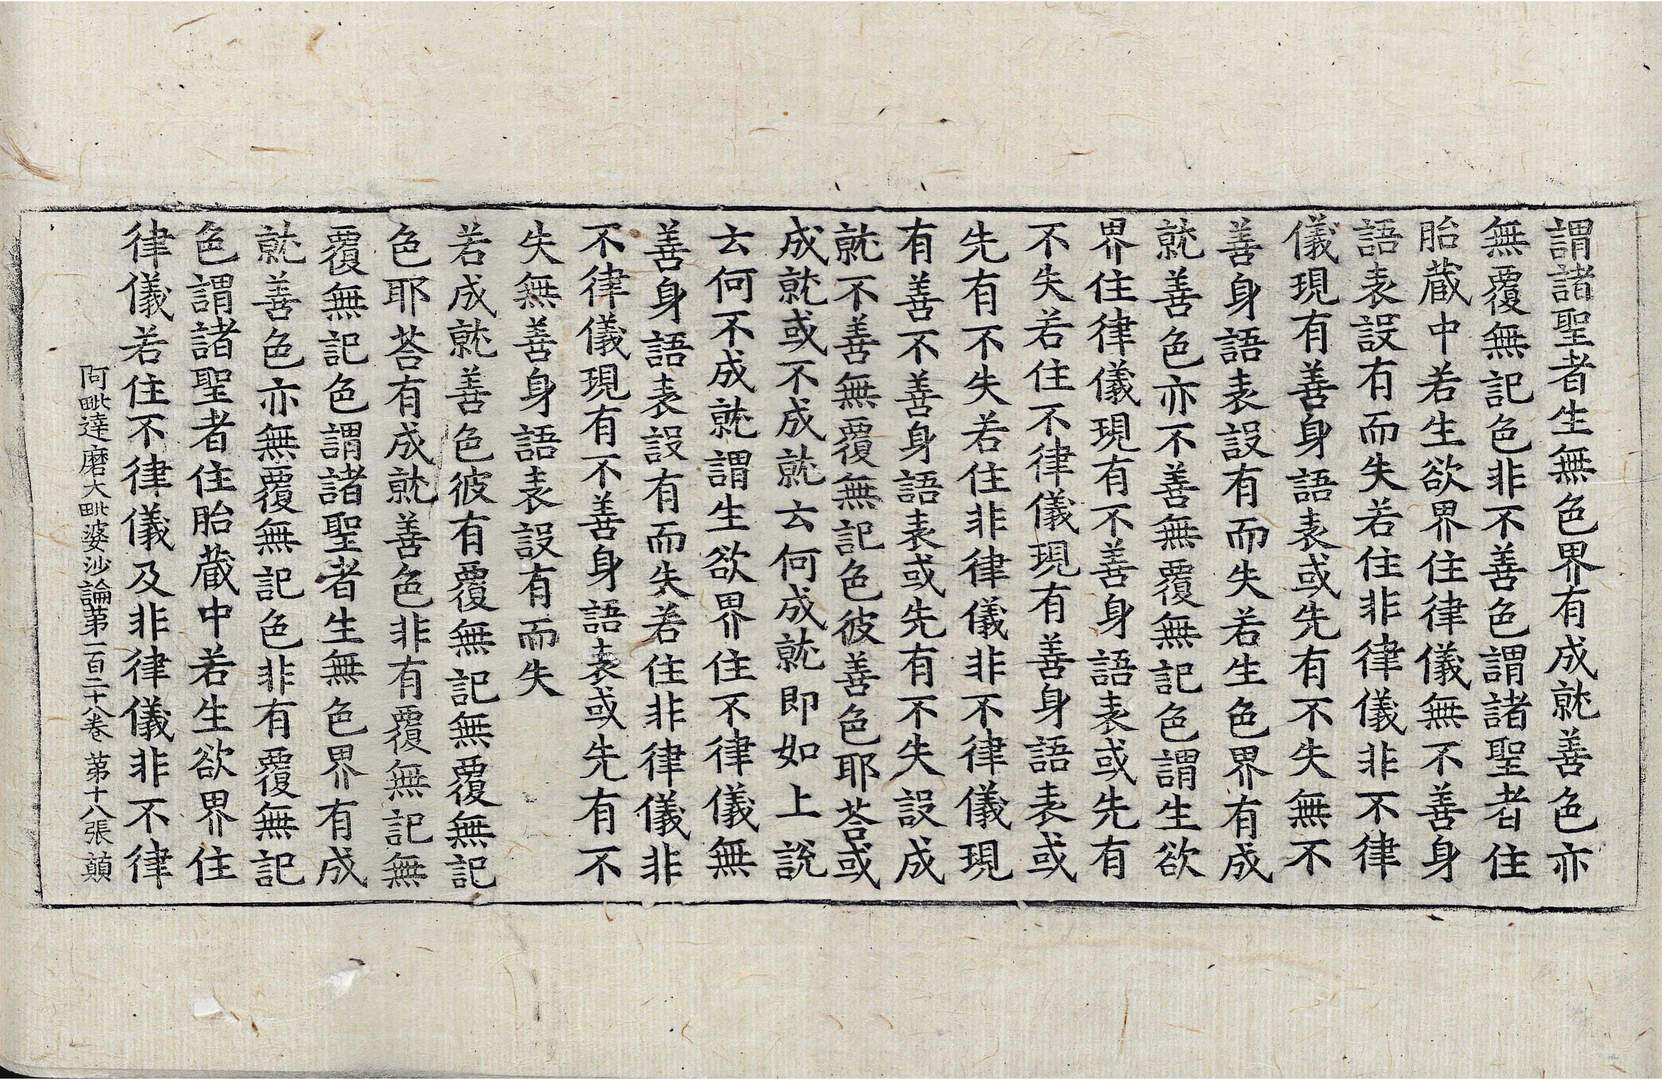 謂諸聖者生無色界有成就善色亦
無覆無記色非不善色謂諸聖者住
胎藏中若生欲界住律儀無不善身
語表設有而失若住非律儀非不律
儀現有善身語表或先有不失無不
善身語表設有而失若生色界有成
就善色亦不善無覆無記色謂生欲
界住律儀現有不善身語表或先有
不失若住不律儀現有善身語表或
先有不失若住非律儀非不律儀現
有善不善身語表或先有不失設成
就不善無覆無記色彼善色耶荅或
成就或不成就云何成就即如上說
云何不成就謂生欲界住不律儀無
善身語表設有而失若住非律儀非
不律儀現有不善身語表或先有不
失無善身語表設有而失
若成就善色彼有覆無記無覆無記
色耶荅有成就善色非有覆無記無
覆無記色謂諸聖者生無色界有成
就善色亦無覆無記色非有覆無記
色謂諸聖者住胎藏中若生欲界住
律儀若住不律儀及非律儀非不律
阿毗達磨大毗婆沙論第一百二十八卷 第十八張 顛